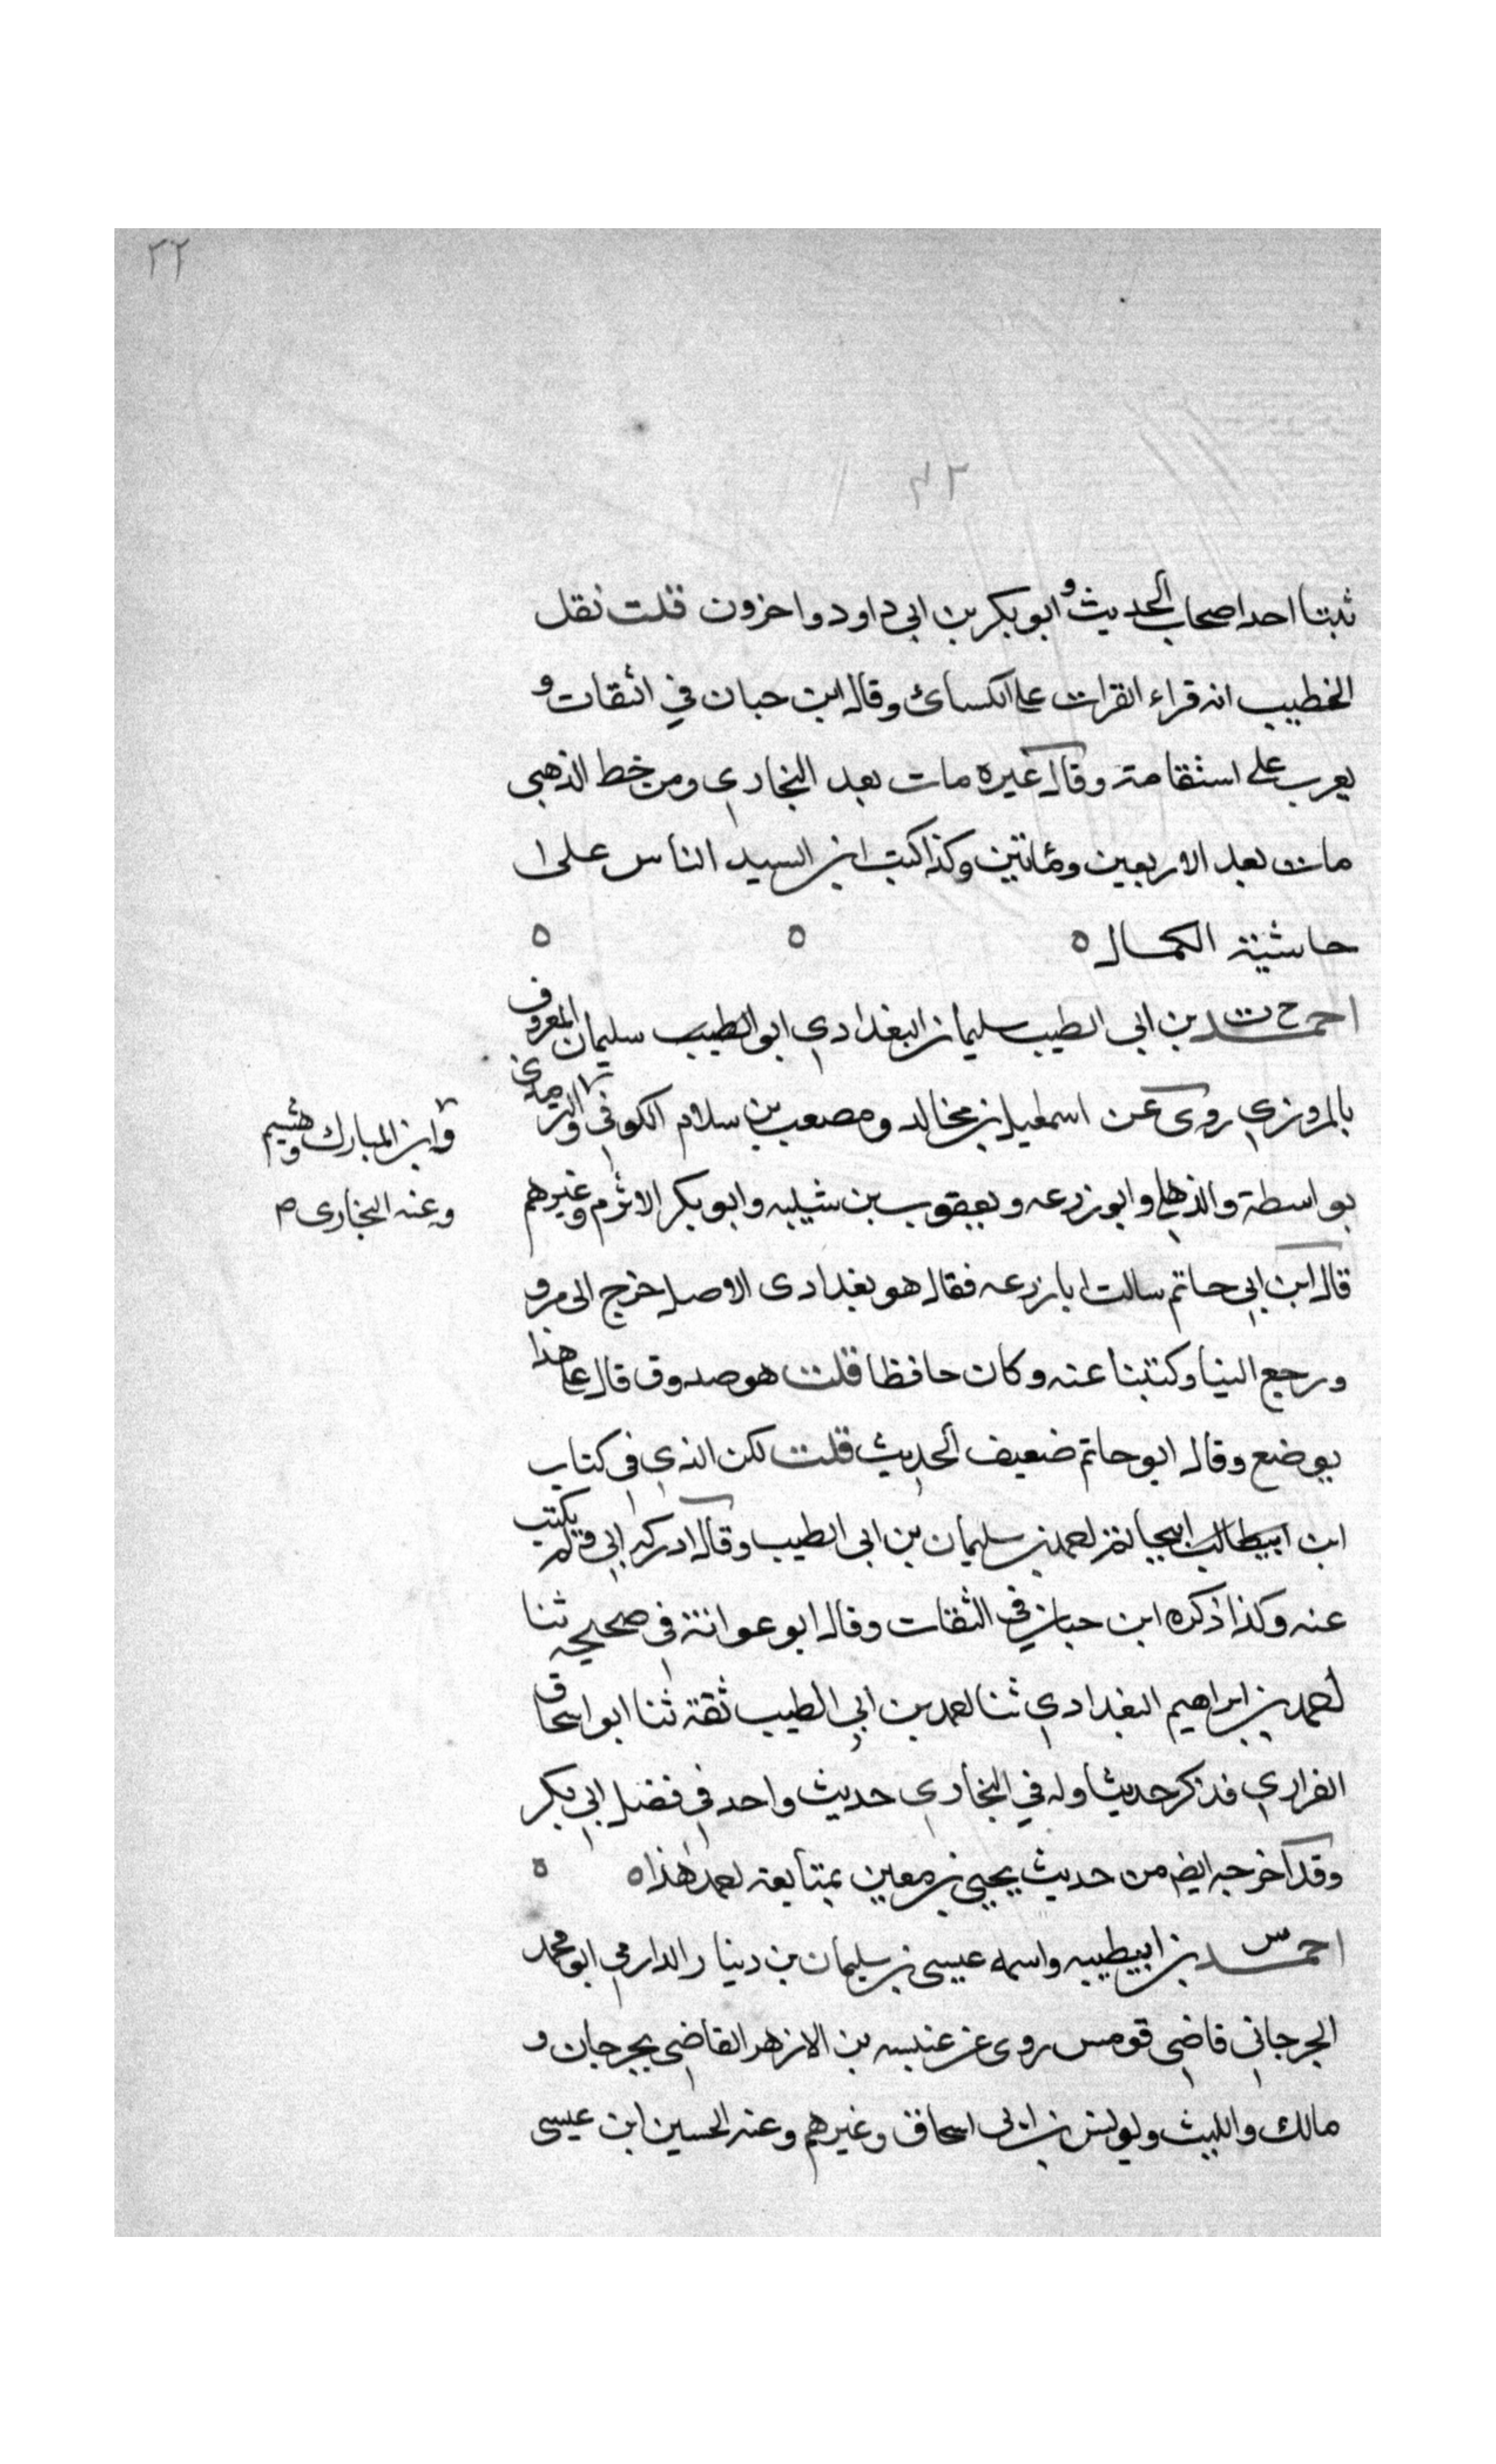 ٢٢
٢٢
ثبتا احد اصحاب الحديث و ابو بكر بن ابي داود واخرون قلت نقل
الخطيب انه قراء القرات على الكسائ وقال ابن حبان في الثقات و
يعرب على استقامة وقال غيره مات بعد البخاري ومن خط الذهبى
مات بعد الاربعين ومائتين وكذا كتب ابن السيد الناس على ا
حاشية الكمال ه ه ه
احمد خ ت بن ابى الطيب سليمان البغدادي ابو الطيب سليمان المعروف
بالمروزي روى عن اسمعيل بن مخالد ومصعب بن سلام الكوفي والترمذى
وابن المبارك وهشيم
وعنه البخارى ص
بواسطة والذهلي وابو زرعه ويعقوب بن شيبه وابو بكر الاثرم وغيرهم
قال ابن ابي حاتم سالت ابا زرعه فقال هو بغدادى الاصل خرج الى مرو
ورجع الينا وكتبنا عنه وكان حافظا قلت هو صدوق قال على هذا
يوضع وقال ابو حاتم ضعيف الحديث قلت لكن الذي في كتاب
ابن ابيطالب سليمان بن ابى الطيب وقال ادركه ابي ولم يكتب
عنه وكذا ذكره ابن حبان في الثقات وقال ابو عوانة في صحيحه ثنا
احمد بن ابراهيم البغدادي ثنا احمد بن ابي الطيب ثقة ثنا ابو اسحاق
الفراري فذكر حديثا وله في البخاري حديث واحد في فضل ابي بكر
وقد اخرجه ايضا من حديث يحيى بن معين بمتابعة احمد هذا ه ه
احمد س بن ابيطيبه واسمه عيسى بن سليمان بن دينار الدارمي ابو محمد
الجرجاني قاضي قومس روى عن عنبسه بن الازهر القاضي بجرجان و
مالك والليث ويونس بن ابى اسحاق وغيرهم وعنه الحسين ابن عيسى